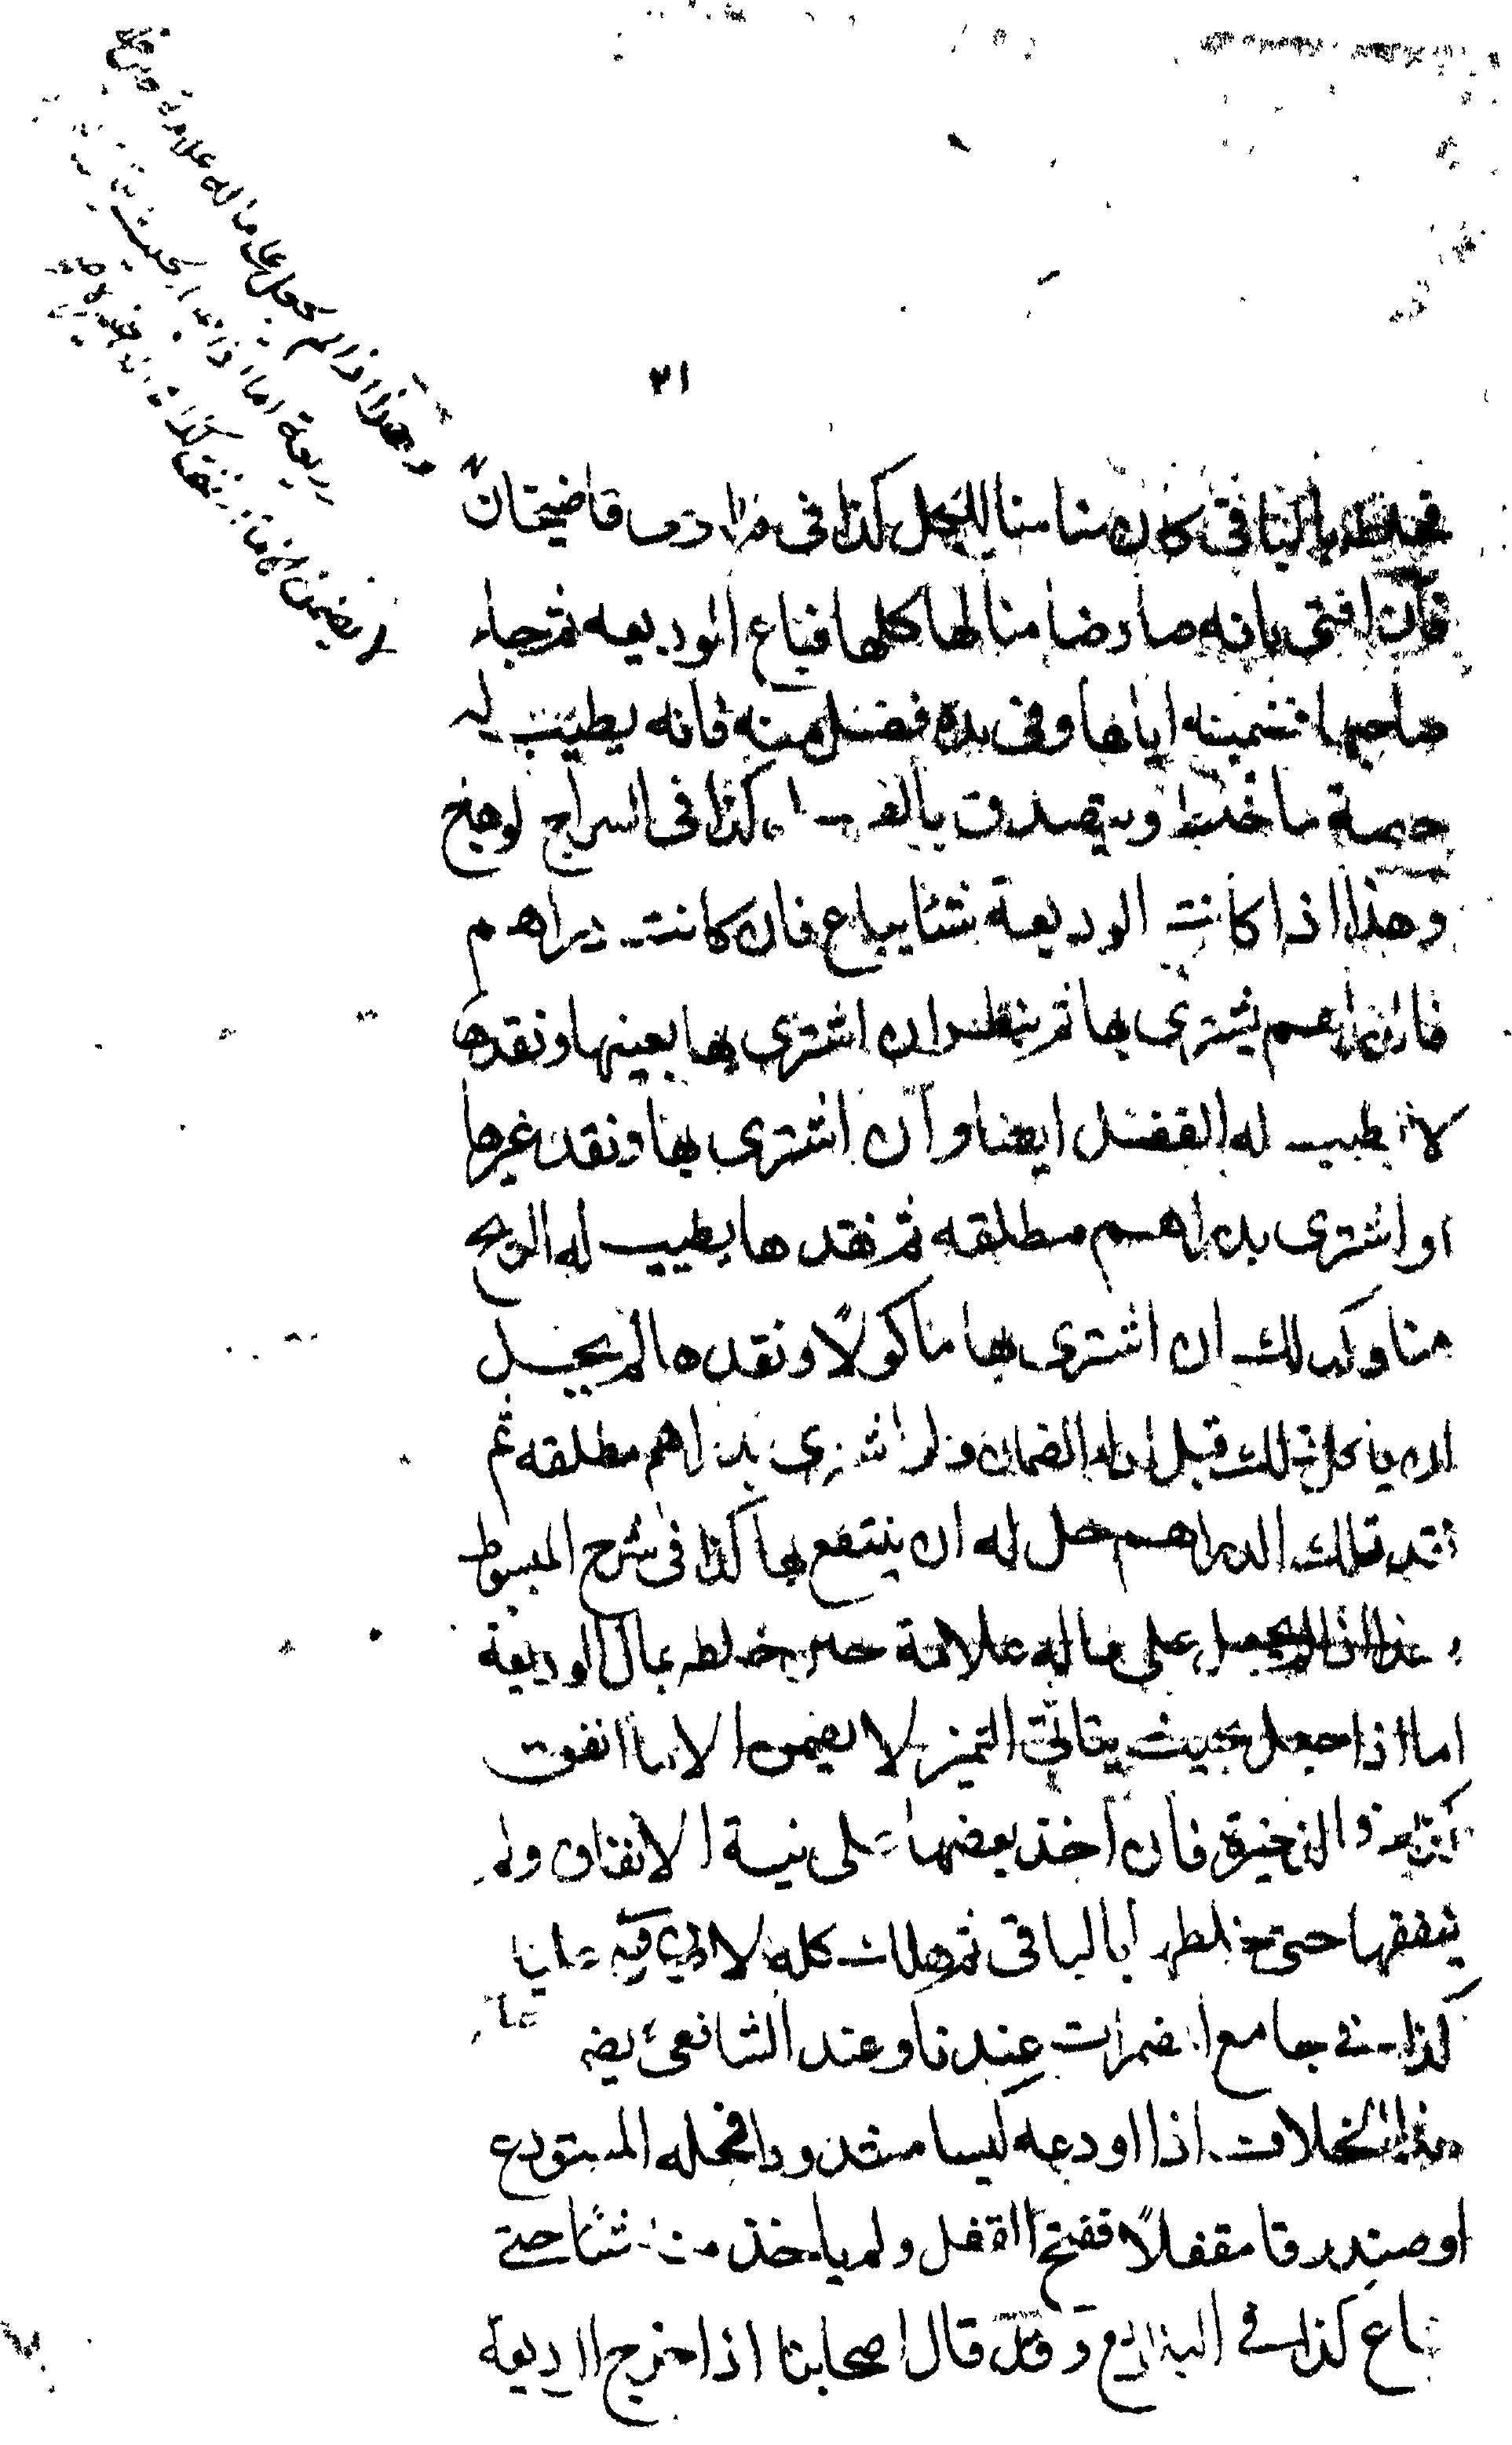 ٢١
فخلطه بالباقي كان ضامنا للكل كذا في فتاوى قاضيخان
فان افتى بانه صار ضامنا لها كلها فباع الوديعه ثم جاء
صاحبها فضمنه اياها وفي يده فضل منه فانه يطيب له
حصة ما خلط ويتصدق بالفضل كذا في السراج الوهاج
وهذا اذا كانت الوديعة شئا يباع فان كانت دراهم
فالدراهم يشترى بها ثم ينظر ان اشترى بها بعينها ونقدها
لا يطيب له الفضل ايضا وان اشترى بها ونقد غيرها
او اشترى بدراهم مطلقه ثم نقدها يطيب له الربح
هنا وكذلك ان اشترى بها ماكولا ونقدها لم يحل
له ان ياكل ذلك قبل اداء الضمان ولو اشترى بدراهم مطلقه ثم
نقد تلك الدراهم حل له ان ينتفع بها كذا في شرح المبسوط
وهذا اذا لم يجعل على ماله علامة حين خلطه بمال الوديعة
اما اذا جعل بحيث يتاتى التميز لا يضمن الا ما انفق
كذا في الذخيرة فان اخذ بعضها على نية الانفاق ولم
ينفقها حتى خلطها بالباقي ثم هلك كله لا
كذا في جامع المضمرات عندنا وعند الشافعي يضمن
هذا الخلاف اذا اودعه كيسا مشدودا فحله المستودع
او صندوقا مقفلا ففتح القفل ولم ياخذ منه شئا حتى
ضاع كذا في البدائع وقد قال اصحابنا اذا اخرج الوديعة
وهذا اذا لم يجعل على ماله علامة
وديعة اما اذا بحيث
لا يضمن الا ما انفق كذا في الذخيرة